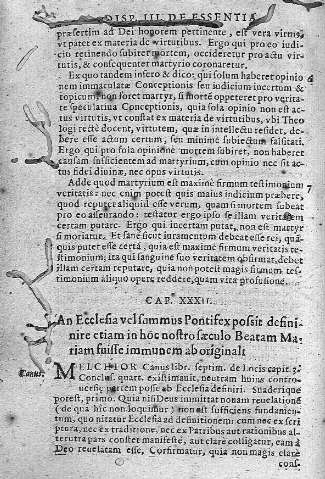 DISP. III. DE ESSENTIA
præsertim ad Dei honorem pertinente, est vera virtus,
vt patet ex materia de virtutibus. Ergo qui pro eo iudi-
cio retinendo subiret mortem, occideretur pro actu vir-
tutis, & consequenter martyrio coronaretur.
Ex quo tandem infero & dico: qui solum haberet opinio 6
nem immaculatæ Conceptionis seu iudicium incertum &
topicum, non foret martyr, si mortē oppeteret pro verita-
te speculatiua Conceptionis, quia sola opinio non est ac-
tus virtutis, vt constat ex materia de virtutibus, vbi Theo
logi rectè docent, virtutem, quæ in intellectu residet, de-
bere esse actum certum, sui minimè subiectum falsitati.
Ergo qui pro sola opinione mortem subiret, non haberet
causam sufficientem ad martyrium, cum opinio nec sit ac-
tus fidei diuinæ, nec opus virtutis.
Adde quod martyrium est maximè firmum testimonium 7
veritatis: nec enim potest quis maius indicium præbere,
quod reputet aliquid esse verum, quam si mortem subeat
pro eo asserendo: testatur ergo ipso se illam veritatem
certam putare. Ergo qui incertam putat, non est martyr
si moriatur. Et sane sicut iuramentum debeat esse rei, quā
quis putet esse certā, quia est maximè firmum veritatis te-
stimonium; ita qui sanguine suo veritatem obfirmat, debet
illam certam reputare, quia non potest magis firmum tes-
timonium aliquo opere reddere, quam vitæ profusione.
CAP. XXXII.
An Ecclesia vel summus Pontifex possit defini-
nire etiam in hoc nostro sæculo Beatam Ma-
riam fuisse immunem ab originali
Canus. MELCHIOR Canus libr. septim. de locis capit 3
Conclus. quart. existimauit, neutram huius contro-
uersiæ partem posse ab Ecclesia definiri. Suaderique
potest, primo. Quia nisi Deus immittat nouam reuelationē
(de qua hic non loquimur) non est sufficiens fundamen-
tum, quo nitatur Ecclesia ad definitionem: cum nec ex scri
ptura, nec ex traditione, nec ex Patribus aut rationibus al-
terutra pars constet manifestè, aut clare colligatur, eam à
Deo reuelatam esse, Confirmatur, quia non magis clarè
cons-